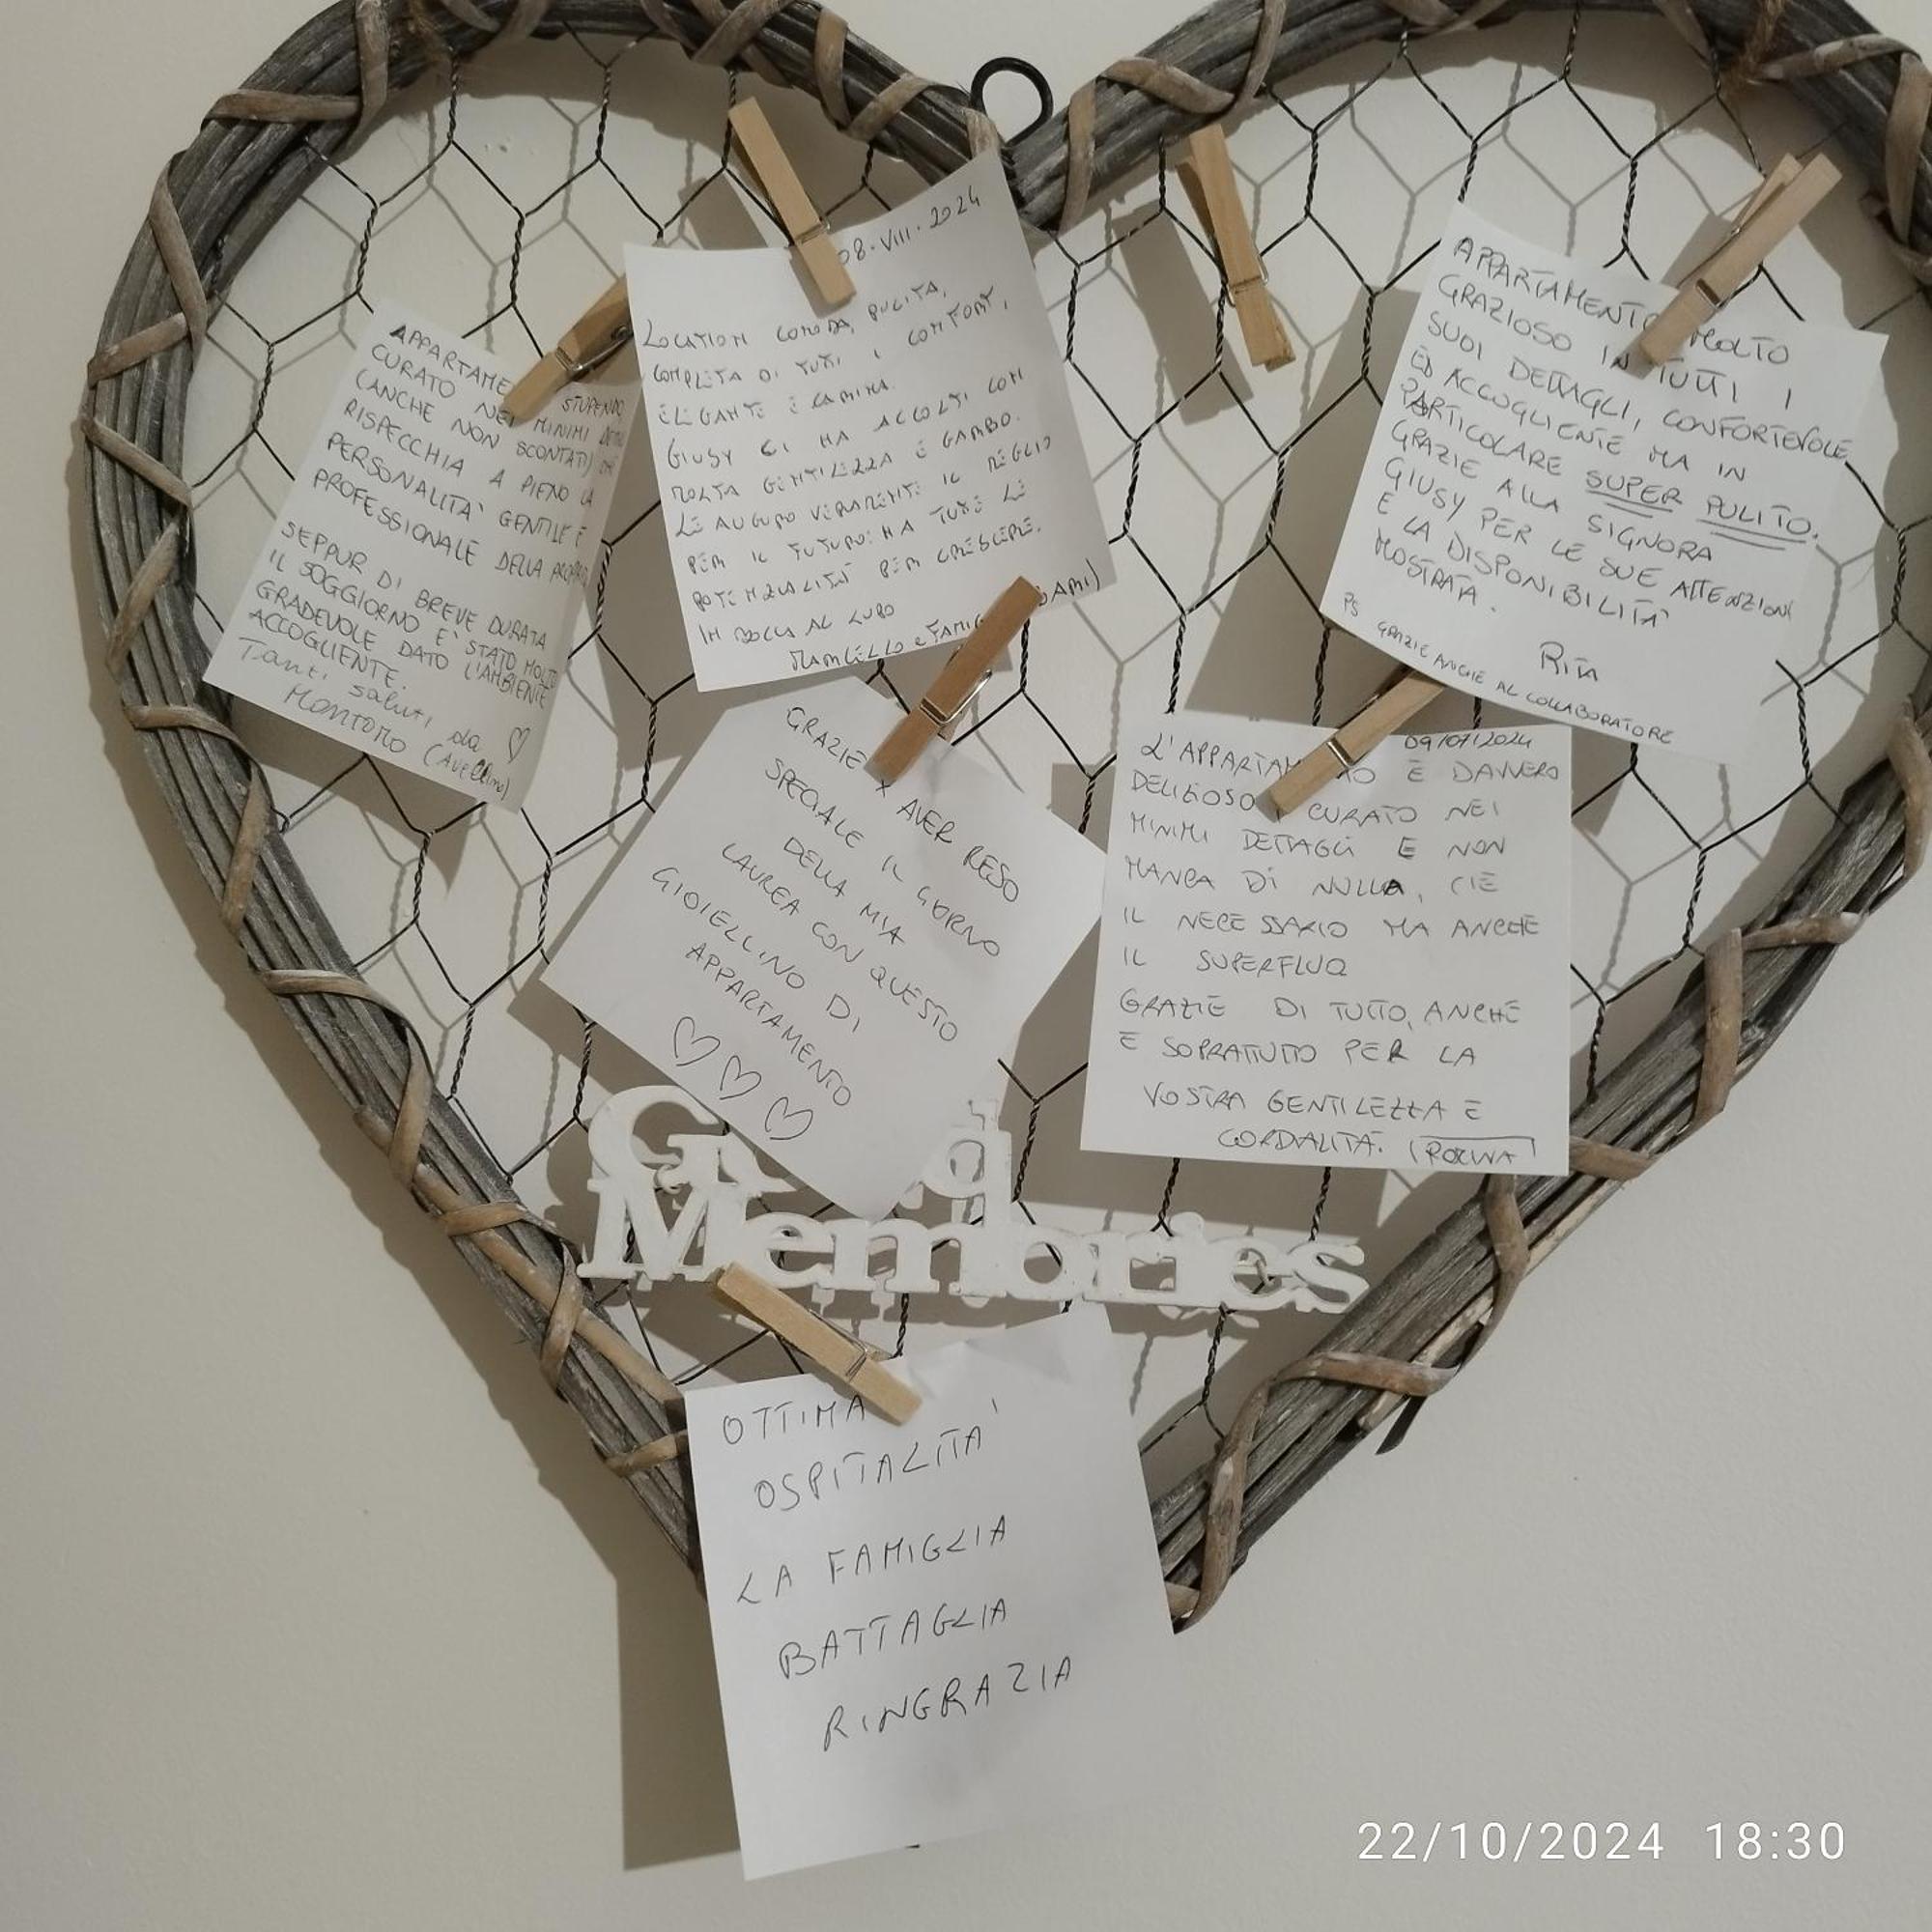 APPARTAME STUPENDO,
CURATO NEI MINIMI
(ANCHE NON SCONTATI) CHE
RISPECCHIA A PIENO LA
PERSONALITA' GENTILE E
PROFESSIONALE DELLA
SEPPUR DI BREVE DURATA
IL SOGGIORNO E' STATO MOLTO
GRADEVOLE DATO L'AMBIENTE
ACCOGLIENTE.
Tanti saluti da
MONTORO (Avellino)
08.VIII.2024
LOCATION COMODA, PULITA,
COMPLETA DI TUTI I COMFORT,
ELEGANTE E CARINA.
GIUSY CI HA ACCOLTI CON
MOLTA GENTILEZZA E GARBO.
LE AUGURO VERAMENTE IL MEGLIO
PER IL FUTURO: HA TUTE LE
POTENZIALITÀ PER CRESCERE.
IN BOCCA AL LUPO
MARCELLO e FAMIG
APPARTAMENTO MOLTO
GRAZIOSO IN TUTTI I
SUOI DETTAGLI, CONFORTEVOLE
ED ACCOGLIENTE MA IN
PARTICOLARE SUPER PULITO.
GRAZIE ALLA SIGNORA
GIUSY PER LE SUE ATTENZIONI
E LA DISPONIBILITÀ
MOSTRATA.
RITA
PS GRAZIE ANCHE AL COLLABORATORE
GRAZIE X AVER RESO
SPECIALE IL GIORNO
DELLA MIA
LAUREA CON QUESTO
GIOIELLINO DI
APPARTAMENTO
09/07/2024
L'APPARTAM TO È DAVVERO
DELIZIOSO CURATO NEI
MINIMI DETTAGLI E NON
MANCA DI NULLA, C'È
IL NECESSARIO MA ANCHE
IL SUPERFLUO
GRAZIE DI TUTTO, ANCHE
E SOPRATUTTO PER LA
VOSTRA GENTILEZZA E
CORDIALITÀ.
Good
Memories
OTTIMA
OSPITALITA'
LA FAMIGLIA
BATTAGLIA
RINGRAZIA
22/10/2024 18:30